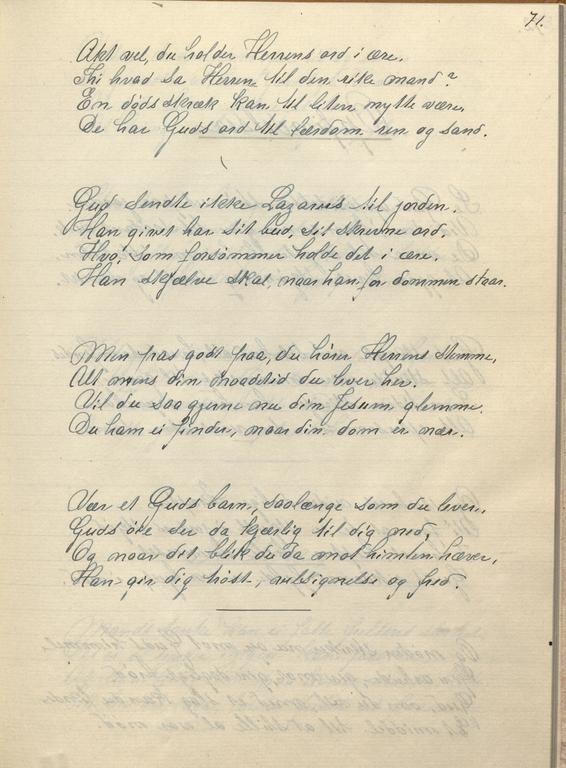 71.
Akt vel, du holder Herrens ord i ære.
Thi hvad sa Herren til den rike mand?
En dødsskræk kan til liten nytte være,
De har Guds ord til lærdom ren og sand.
Gud sendte ikke Lazarus til jorden.
Han givet har sit bud, sit skrevne ord.
Hvo, som forsømmer holde det i ære.
Han skjælve skal, naar han for dommen staar.
Men pas godt paa, du hører Herrens stemme,
At mens din naadetid du lever her.
Vil du saa gjerne nu din Jesum glemme.
Du ham ei finder, naar din dom er nær.
Vær et Guds barn, saalænge som du lever.
Guds øie ser da kjærlig til dig ned,
Og naar dit blik du da mot himlen hæver,
Han gir dig trøst, velsignelse og fred.